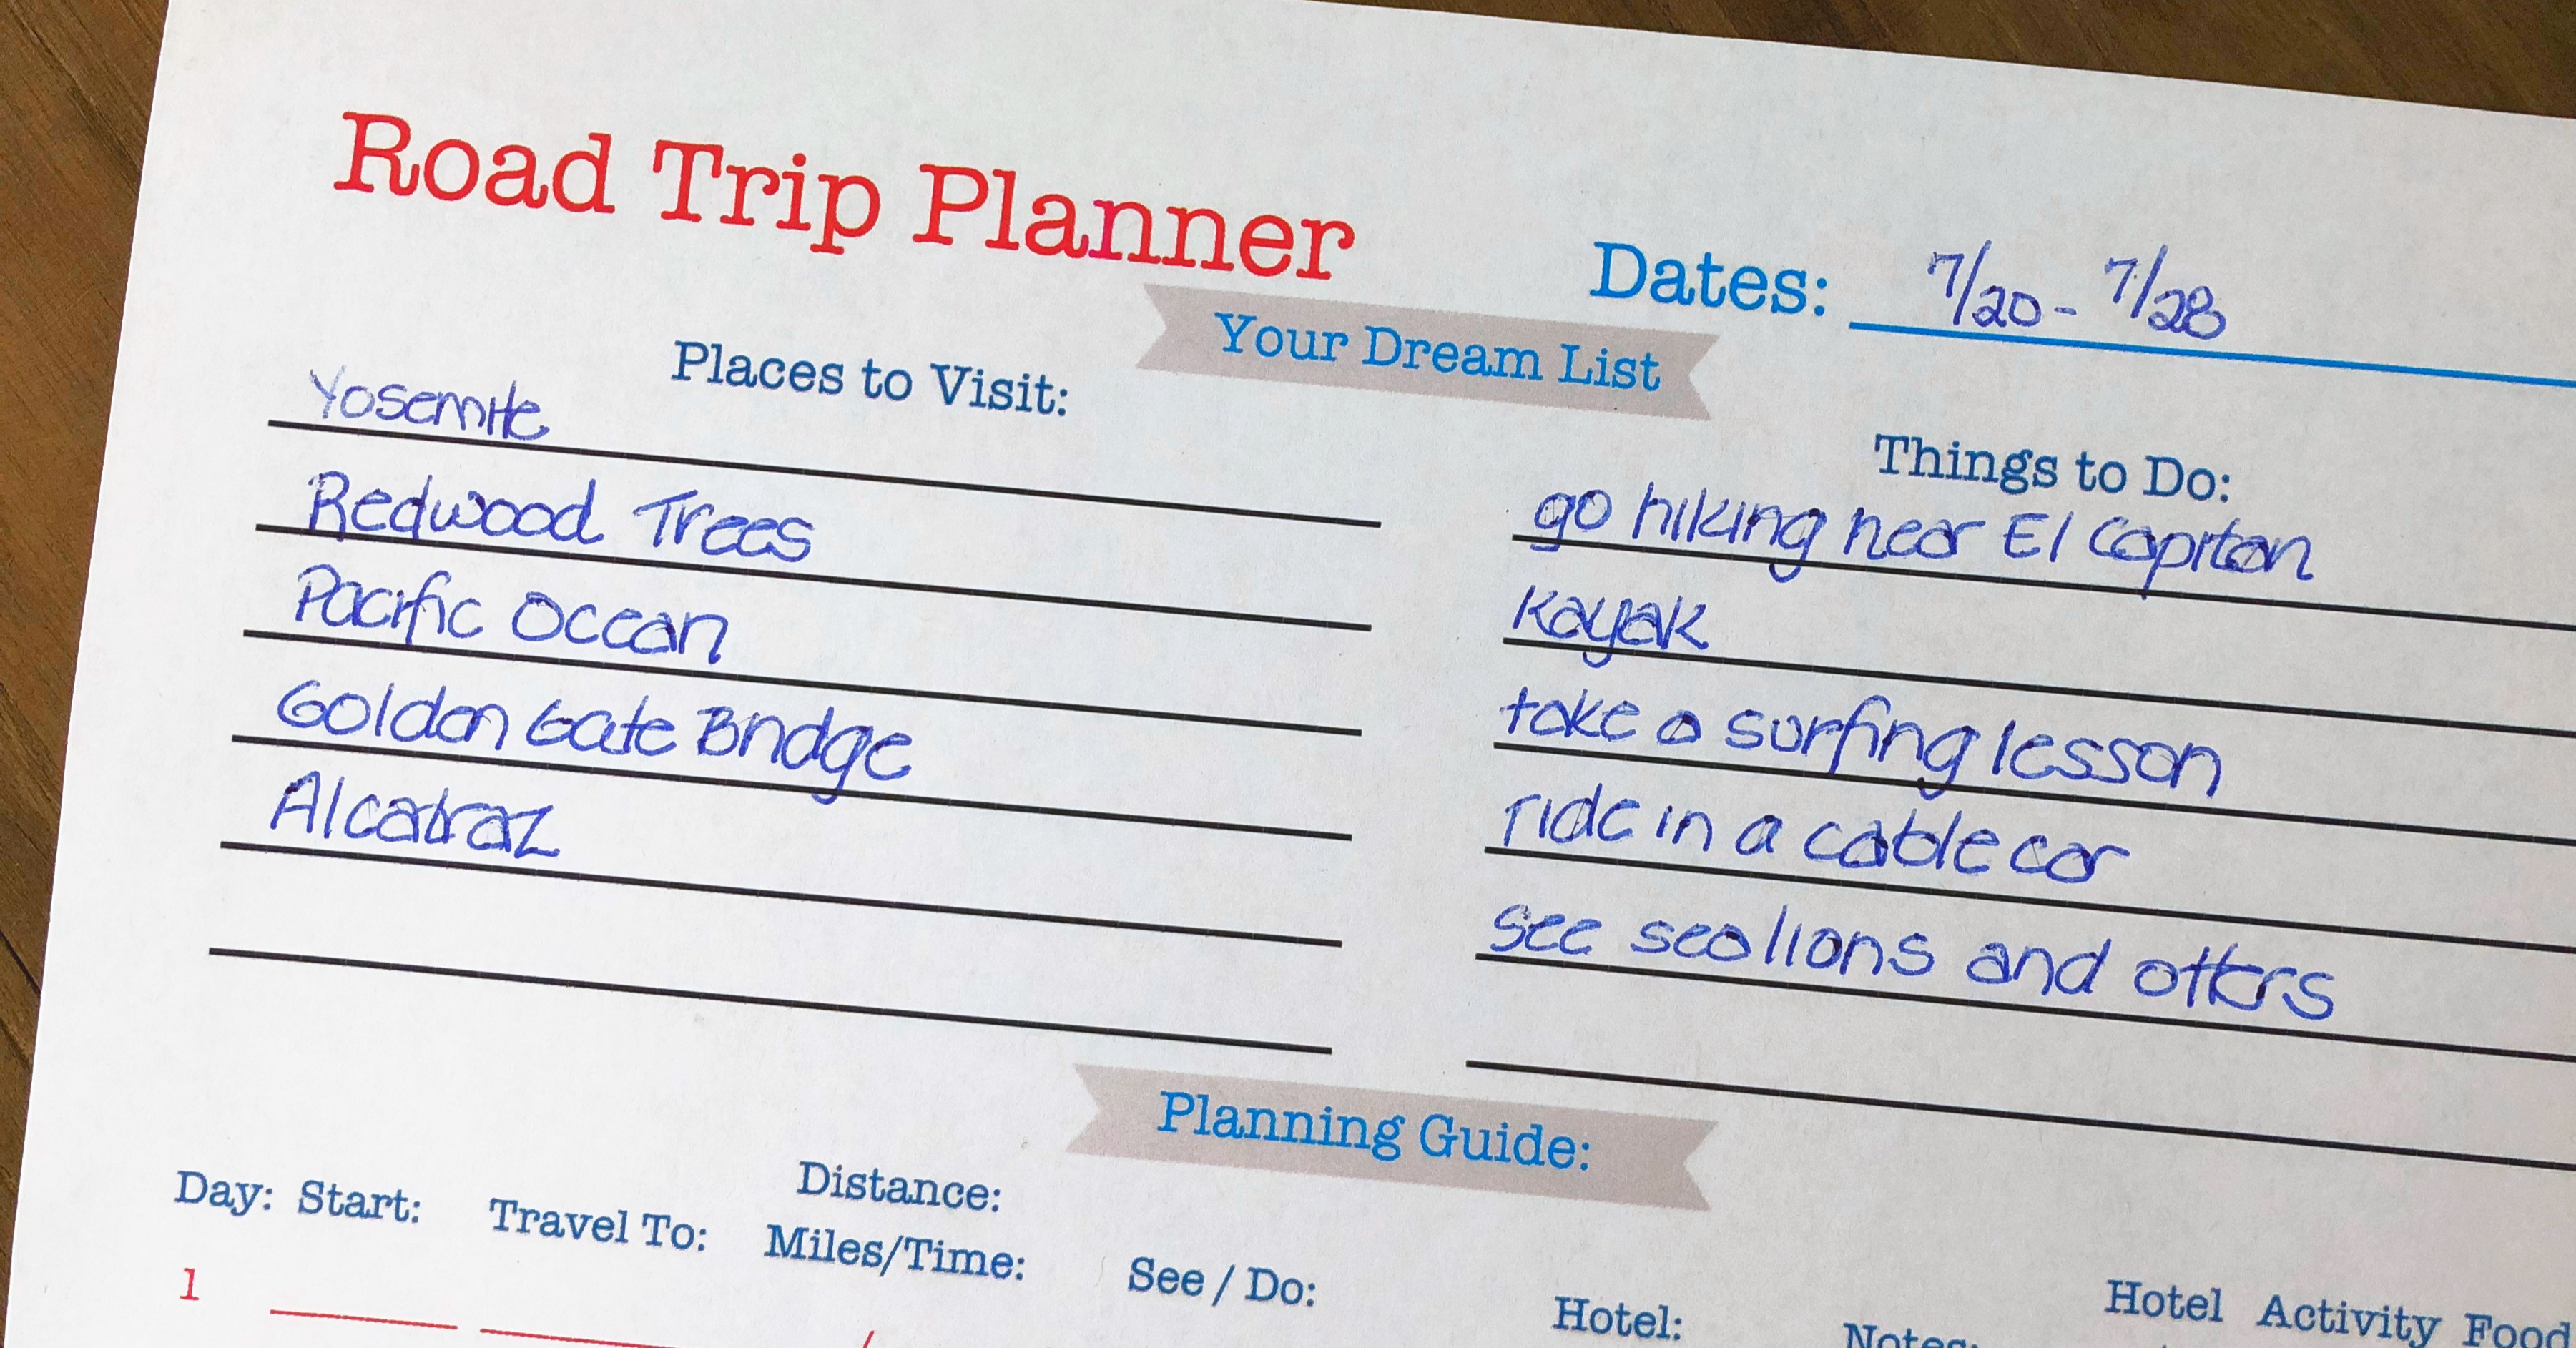 Road Trip Planner
Dates: 7/20 - 7/28
Your Dream List
Places to Visit:
Yosemite
Redwood Trees
Pacific Ocean
Golden Gate Bridge
Alcatraz
Things to Do:
go hiking near El Capitan
Kayak
take a surfing lesson
ride in a cable car
see sea lions and otters
Planning Guide:
Day: Start: Travel To: Distance: Miles/Time: See / Do: Hotel: Notes: Hotel Activity Food
1 /